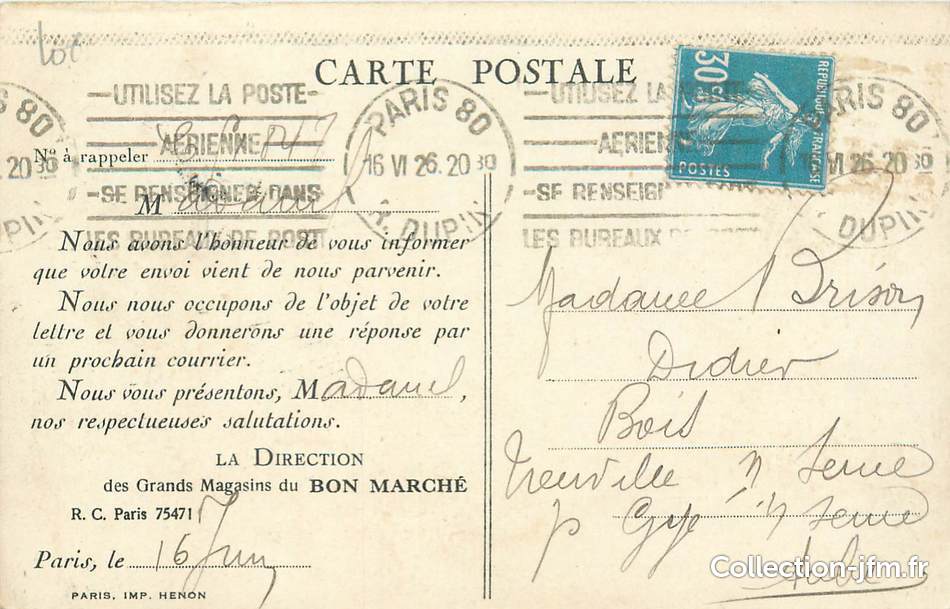 Lot
CARTE POSTALE
UTILISEZ LA POSTE
AERIENNE
SE RENSEIGNER DANS
LES BUREAUX DE POST
PARIS 80
16 VI 26. 20 30
R. DUPIN
UTILISEZ LA
AERIENNE
SE RENSEIG
LES BUREAUX DE
PARIS 80
VI 26. 20 30
DUPIN
80
20 30
DUPIN
30c
REPUBLIQUE FRANCAISE
POSTES
No à rappeler
Madame
Nous avons l'honneur de vous informer
que votre envoi vient de nous parvenir.
Nous nous occupons de l'objet de votre
lettre et vous donnerons une réponse par
un prochain courrier.
Nous vous présentons, Madame,
nos respectueuses salutations.
LA DIRECTION
des Grands Magasins du BON MARCHÉ
R. C. Paris 75471
Paris, le 16 Juin
PARIS, IMP. HENON
Madame Brison
Didier
Bois
Neuville s/ Seine
p Gyé s/ Seine
Aube
Collection-jfm.fr